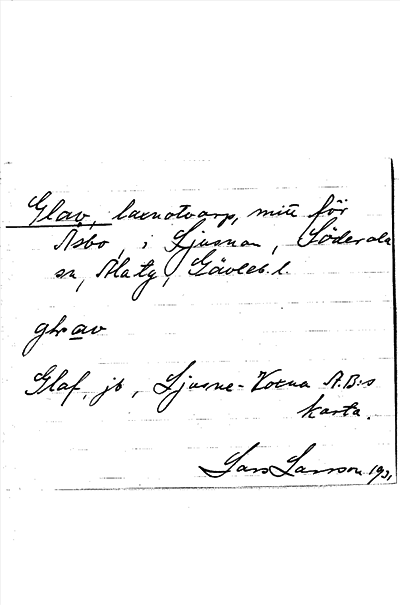 Glav, laxnotvarp, mitt för
Åsbo, i Ljusnan, Söderala
sn, Ala tg, Gävleb. l.
glav
Glaf, jb, Ljusne-Voxna A.B:s
karta.
Lars Larsson 1931